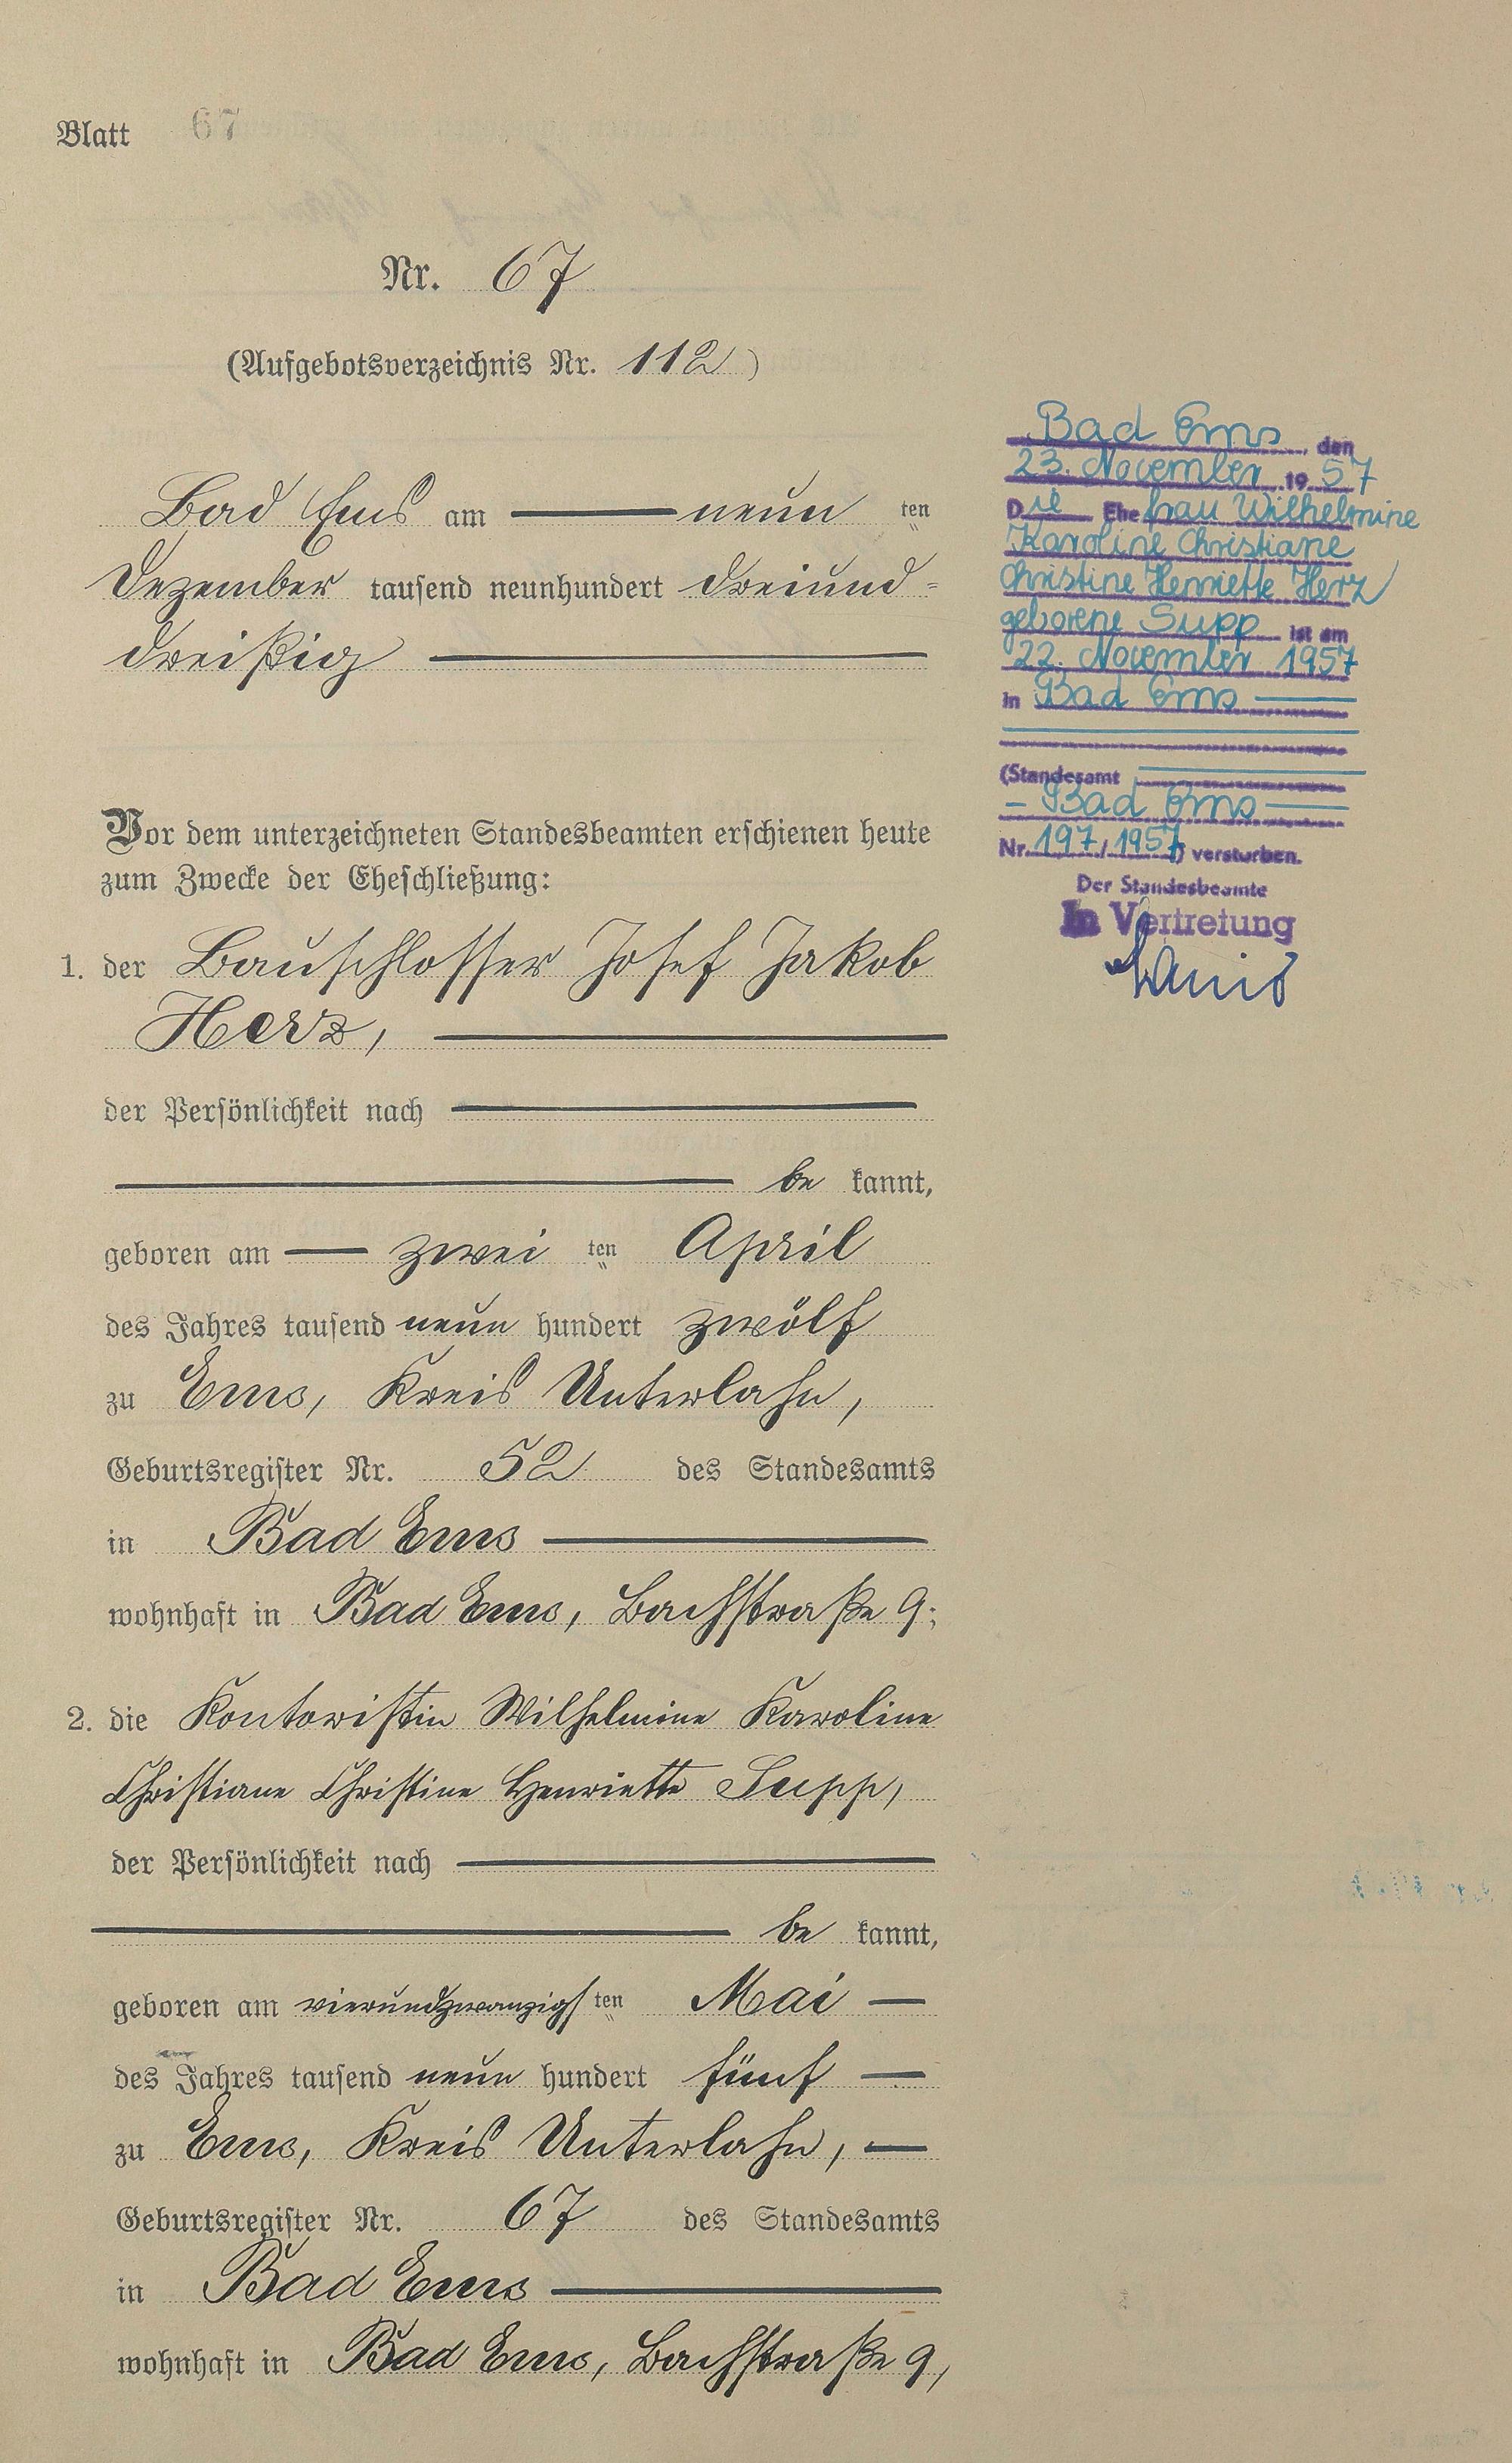 Blatt 67
Nr. 67
(Aufgebotsverzeichnis Nr. 112)
Bad Ems am neun ten
Dezember tausend neunhundert dreiund=
dreißig
Vor dem unterzeichneten Standesbeamten erschienen heute
zum Zwecke der Eheschließung:
1. der Bauschlosser Josef Jakob
Herz,
der Persönlichkeit nach
be kannt,
geboren am zwei ten April
des Jahres tausend neun hundert zwölf
zu Ems, Kreis Unterlahn,
Geburtsregister Nr. 52 des Standesamts
in Bad Ems
wohnhaft in Bad Ems, Bachstraße 9;
2. die Kontoristin Wilhelmine Karoline
Christiane Christine Henriette Supp,
der Persönlichkeit nach
be kannt,
geboren am vierundzwanzigs ten Mai
des Jahres tausend neun hundert fünf
zu Ems, Kreis Unterlahn,
Geburtsregister Nr. 67 des Standesamts
in Bad Ems
wohnhaft in Bad Ems, Bachstraße 9,
Bad Ems, den
23. November 1957
Die Ehefrau Wilhelmine
Karoline Christiane
Christine Henriette Herz
geborene Supp ist am
22. November 1957
in Bad Ems
(Standesamt
Bad Ems
Nr. 197/1957) verstorben.
Der Standesbeamte
In Vertretung